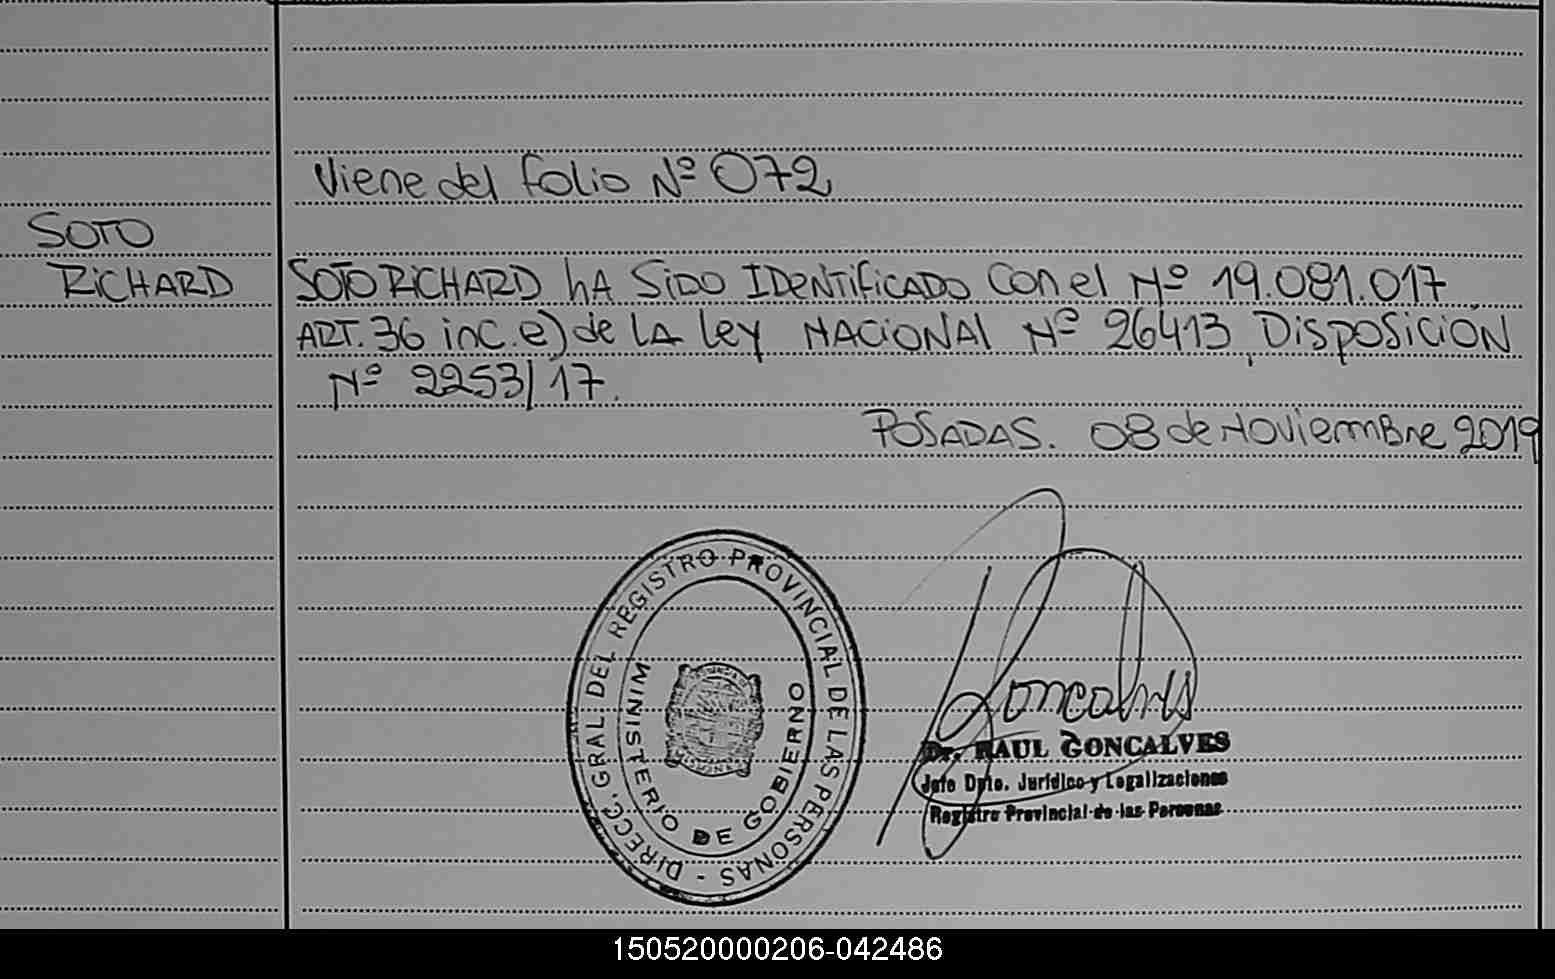 Viene del folio Nº 072
SOTO
RICHARD
SOTO RICHARD hA SIDO IDENTIFICADO Con el Nº 19.081.017
ART. 36 inc. e) de LA Ley NACIONAL Nº 26413, DISPOSICIÓN
Nº 2253/17.
POSADAS. 08 de Noviembre 2019
DIRECC. GRAL. DEL REGISTRO PROVINCIAL DE LAS PERSONAS -
MINISTERIO DE GOBIERNO
MISIONES
Goncalves
Dr. RAUL GONCALVES
Jefe Dpto. Jurídico y Legalizaciones
Registro Provincial de las Personas
150520000206-042486